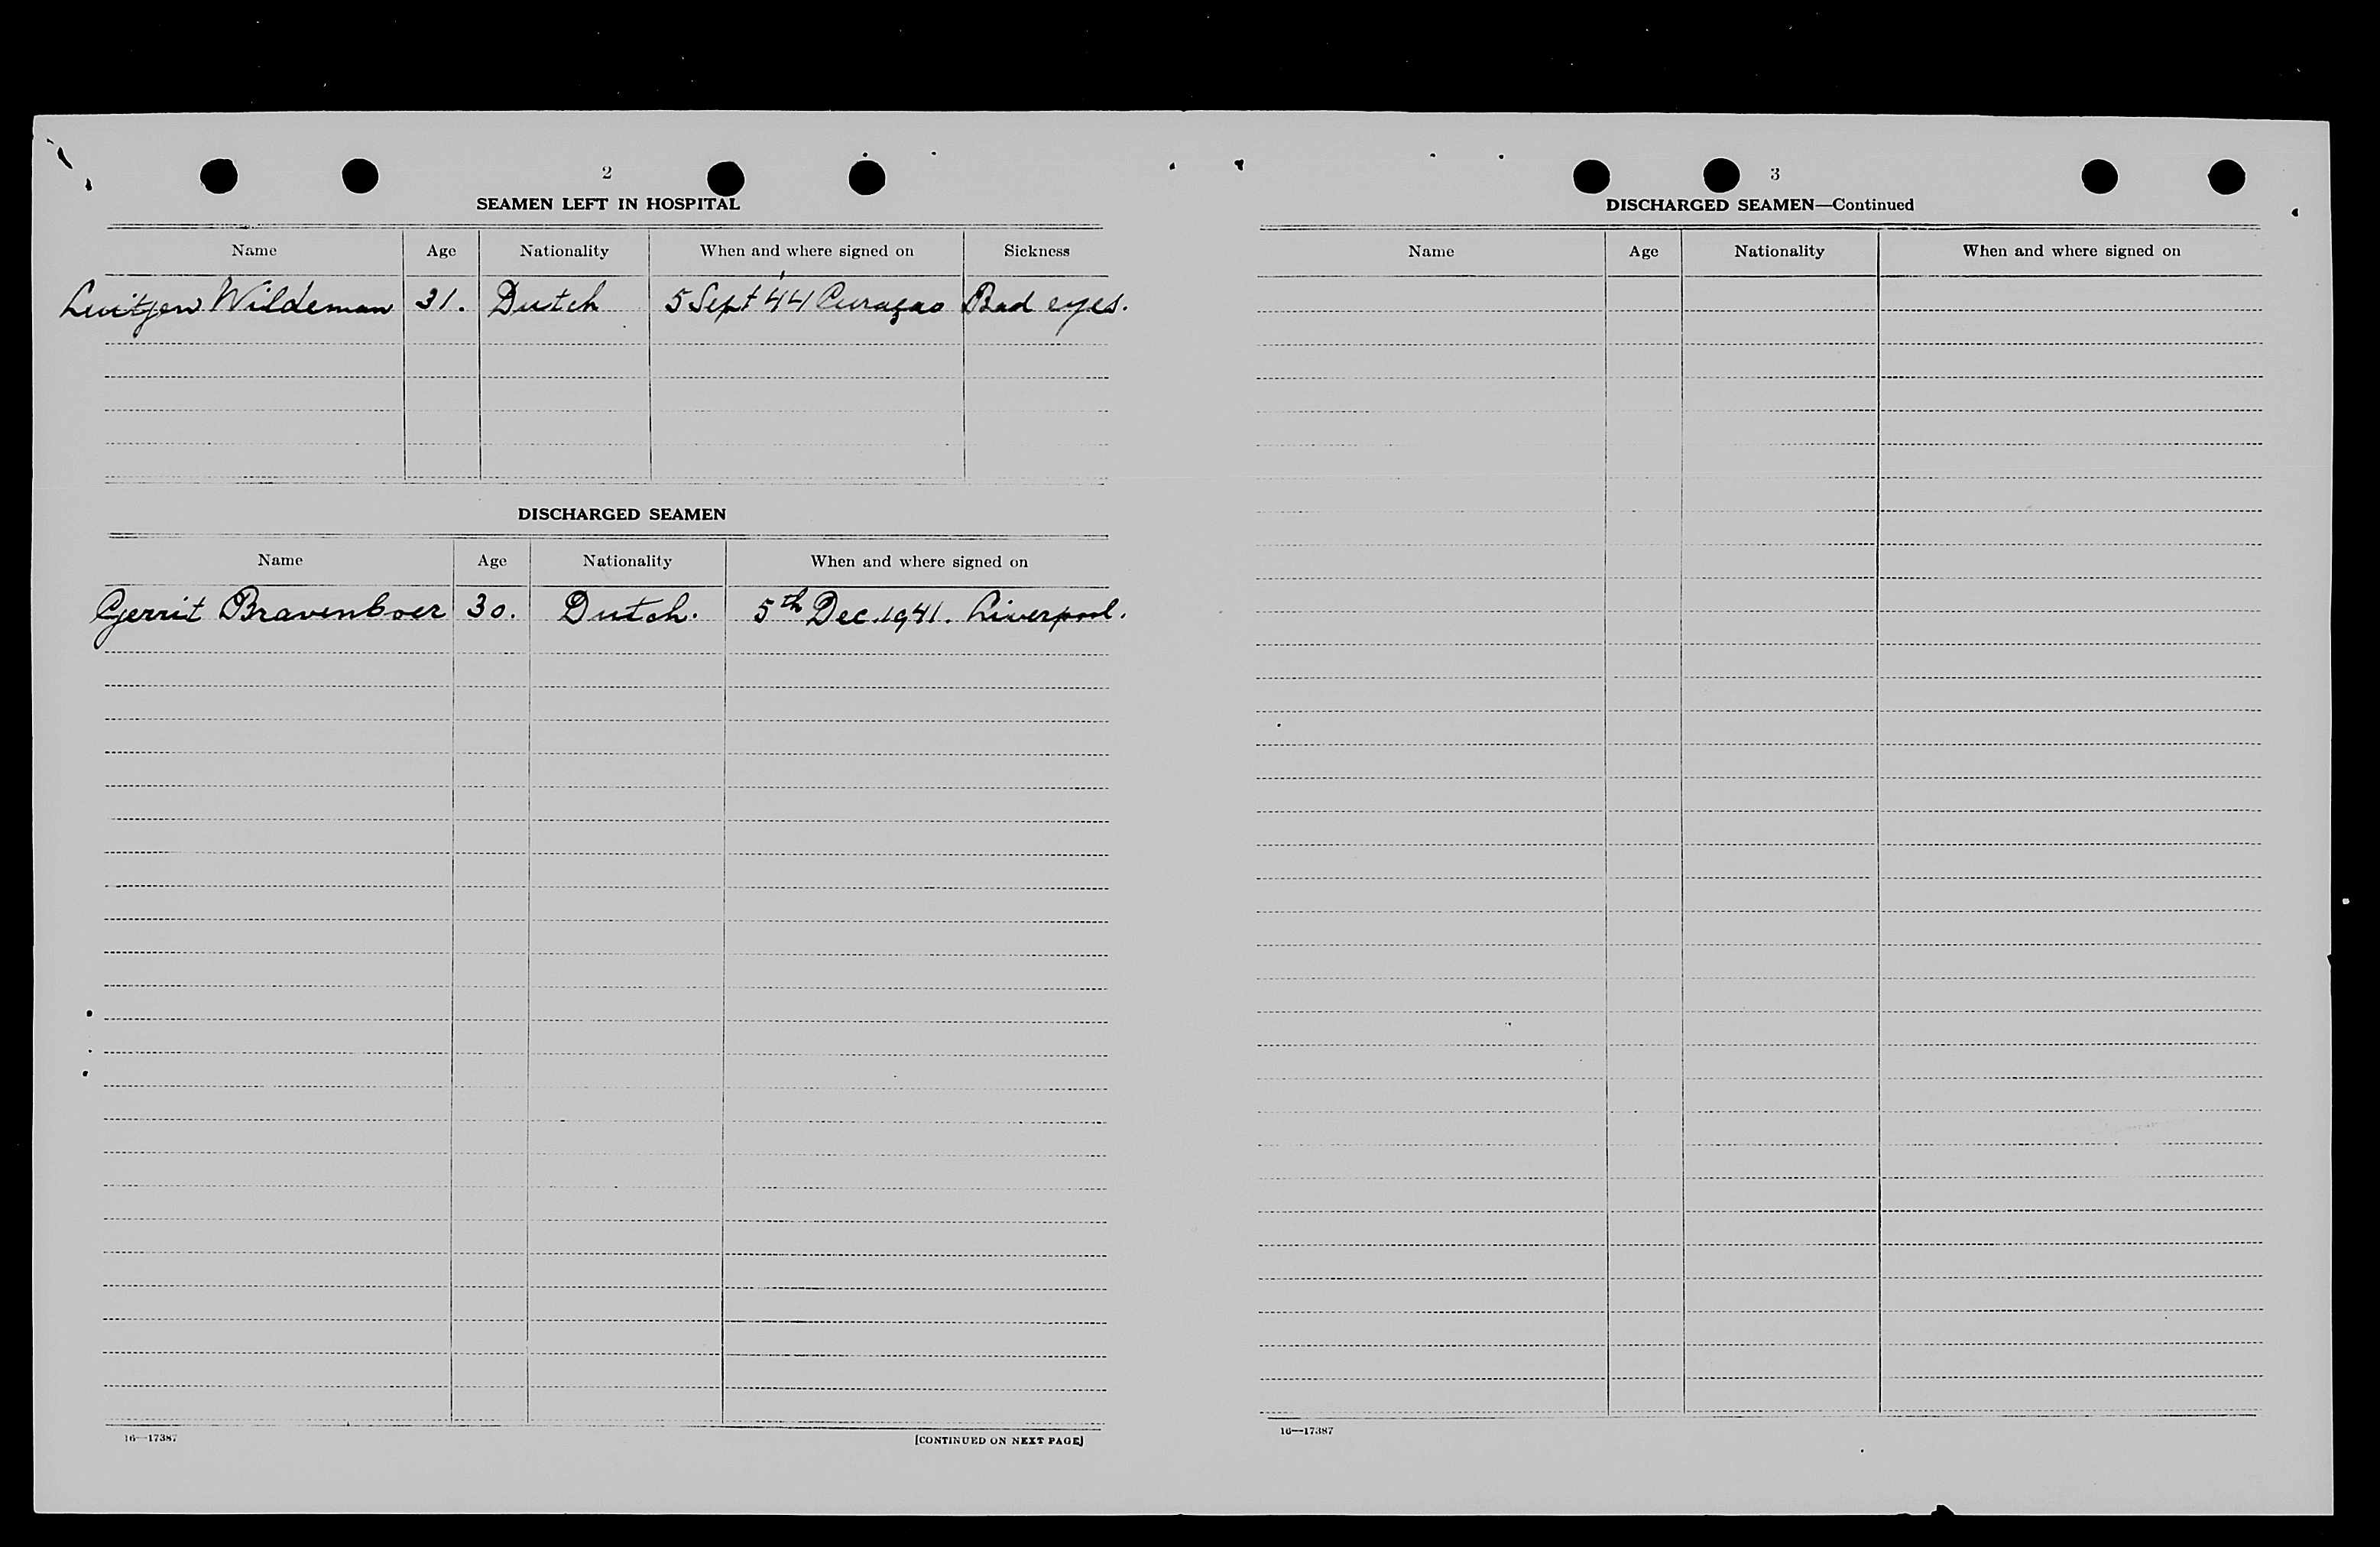 2
SEAMEN LEFT IN HOSPITAL
Name Age Nationality When and where signed on Sickness
Luitjen Wildeman 31. Dutch 5 Sept 44 Curaçao Bad eyes.
DISCHARGED SEAMEN
Name Age Nationality When and where signed on
Gerrit Bravenboer 30. Dutch. 5th Dec. 1941. Liverpool.
16—17387
[CONTINUED ON NEXT PAGE]
3
DISCHARGED SEAMEN—Continued
Name Age Nationality When and where signed on
16—17387